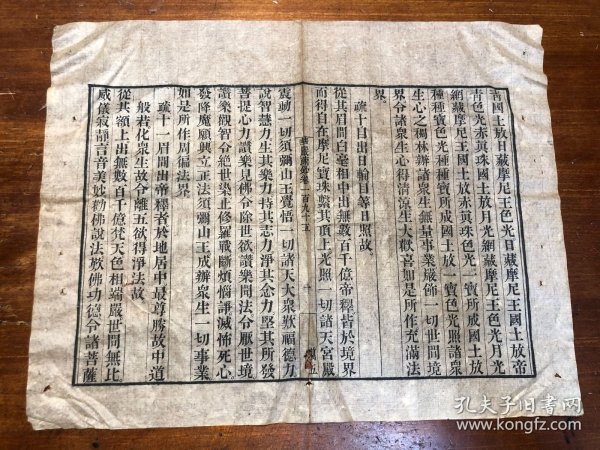 青國土放日藏摩尼王色光日藏摩尼王國土放帝
青色光赤眞珠國土放月光網藏摩尼王色光月光
網藏摩尼王國土放赤眞珠色光一寶所成國土放
種種寶色光種種寶所成國土放一寶色光照諸衆
生心之稠林辦諸衆生無量事業嚴飾一切世間境
界令諸衆生心得清涼生大歡喜如是所作充滿法
界
疏十目出日輪目等日照故
從其眉間白毫相中出無數百千億帝釋皆於境界
而得自在摩尼寶珠繫其頂上光照一切諸天宮嚴
震動一切須彌山王覺悟一切諸天大衆歎福德力
說智慧力生其樂力持其志力淨其念力堅其所發
菩提心力讚樂見佛令除世欲讚樂聞法令厭世境
讚樂觀智令絕世染止修羅戰斷煩惱諍滅怖死心
發降魔願興立正法須彌山王成辦衆生一切事業
如是所作周徧法界
疏十一眉間出帝釋者於地居中最尊勝故中道
般若化衆生故令離五欲得淨法故
從其額上出無數百千億梵天色相端嚴世間無比
威儀寂靜言音美妙勸佛說法歎佛功德令諸菩薩
孔夫子旧书网
www.kongfz.com